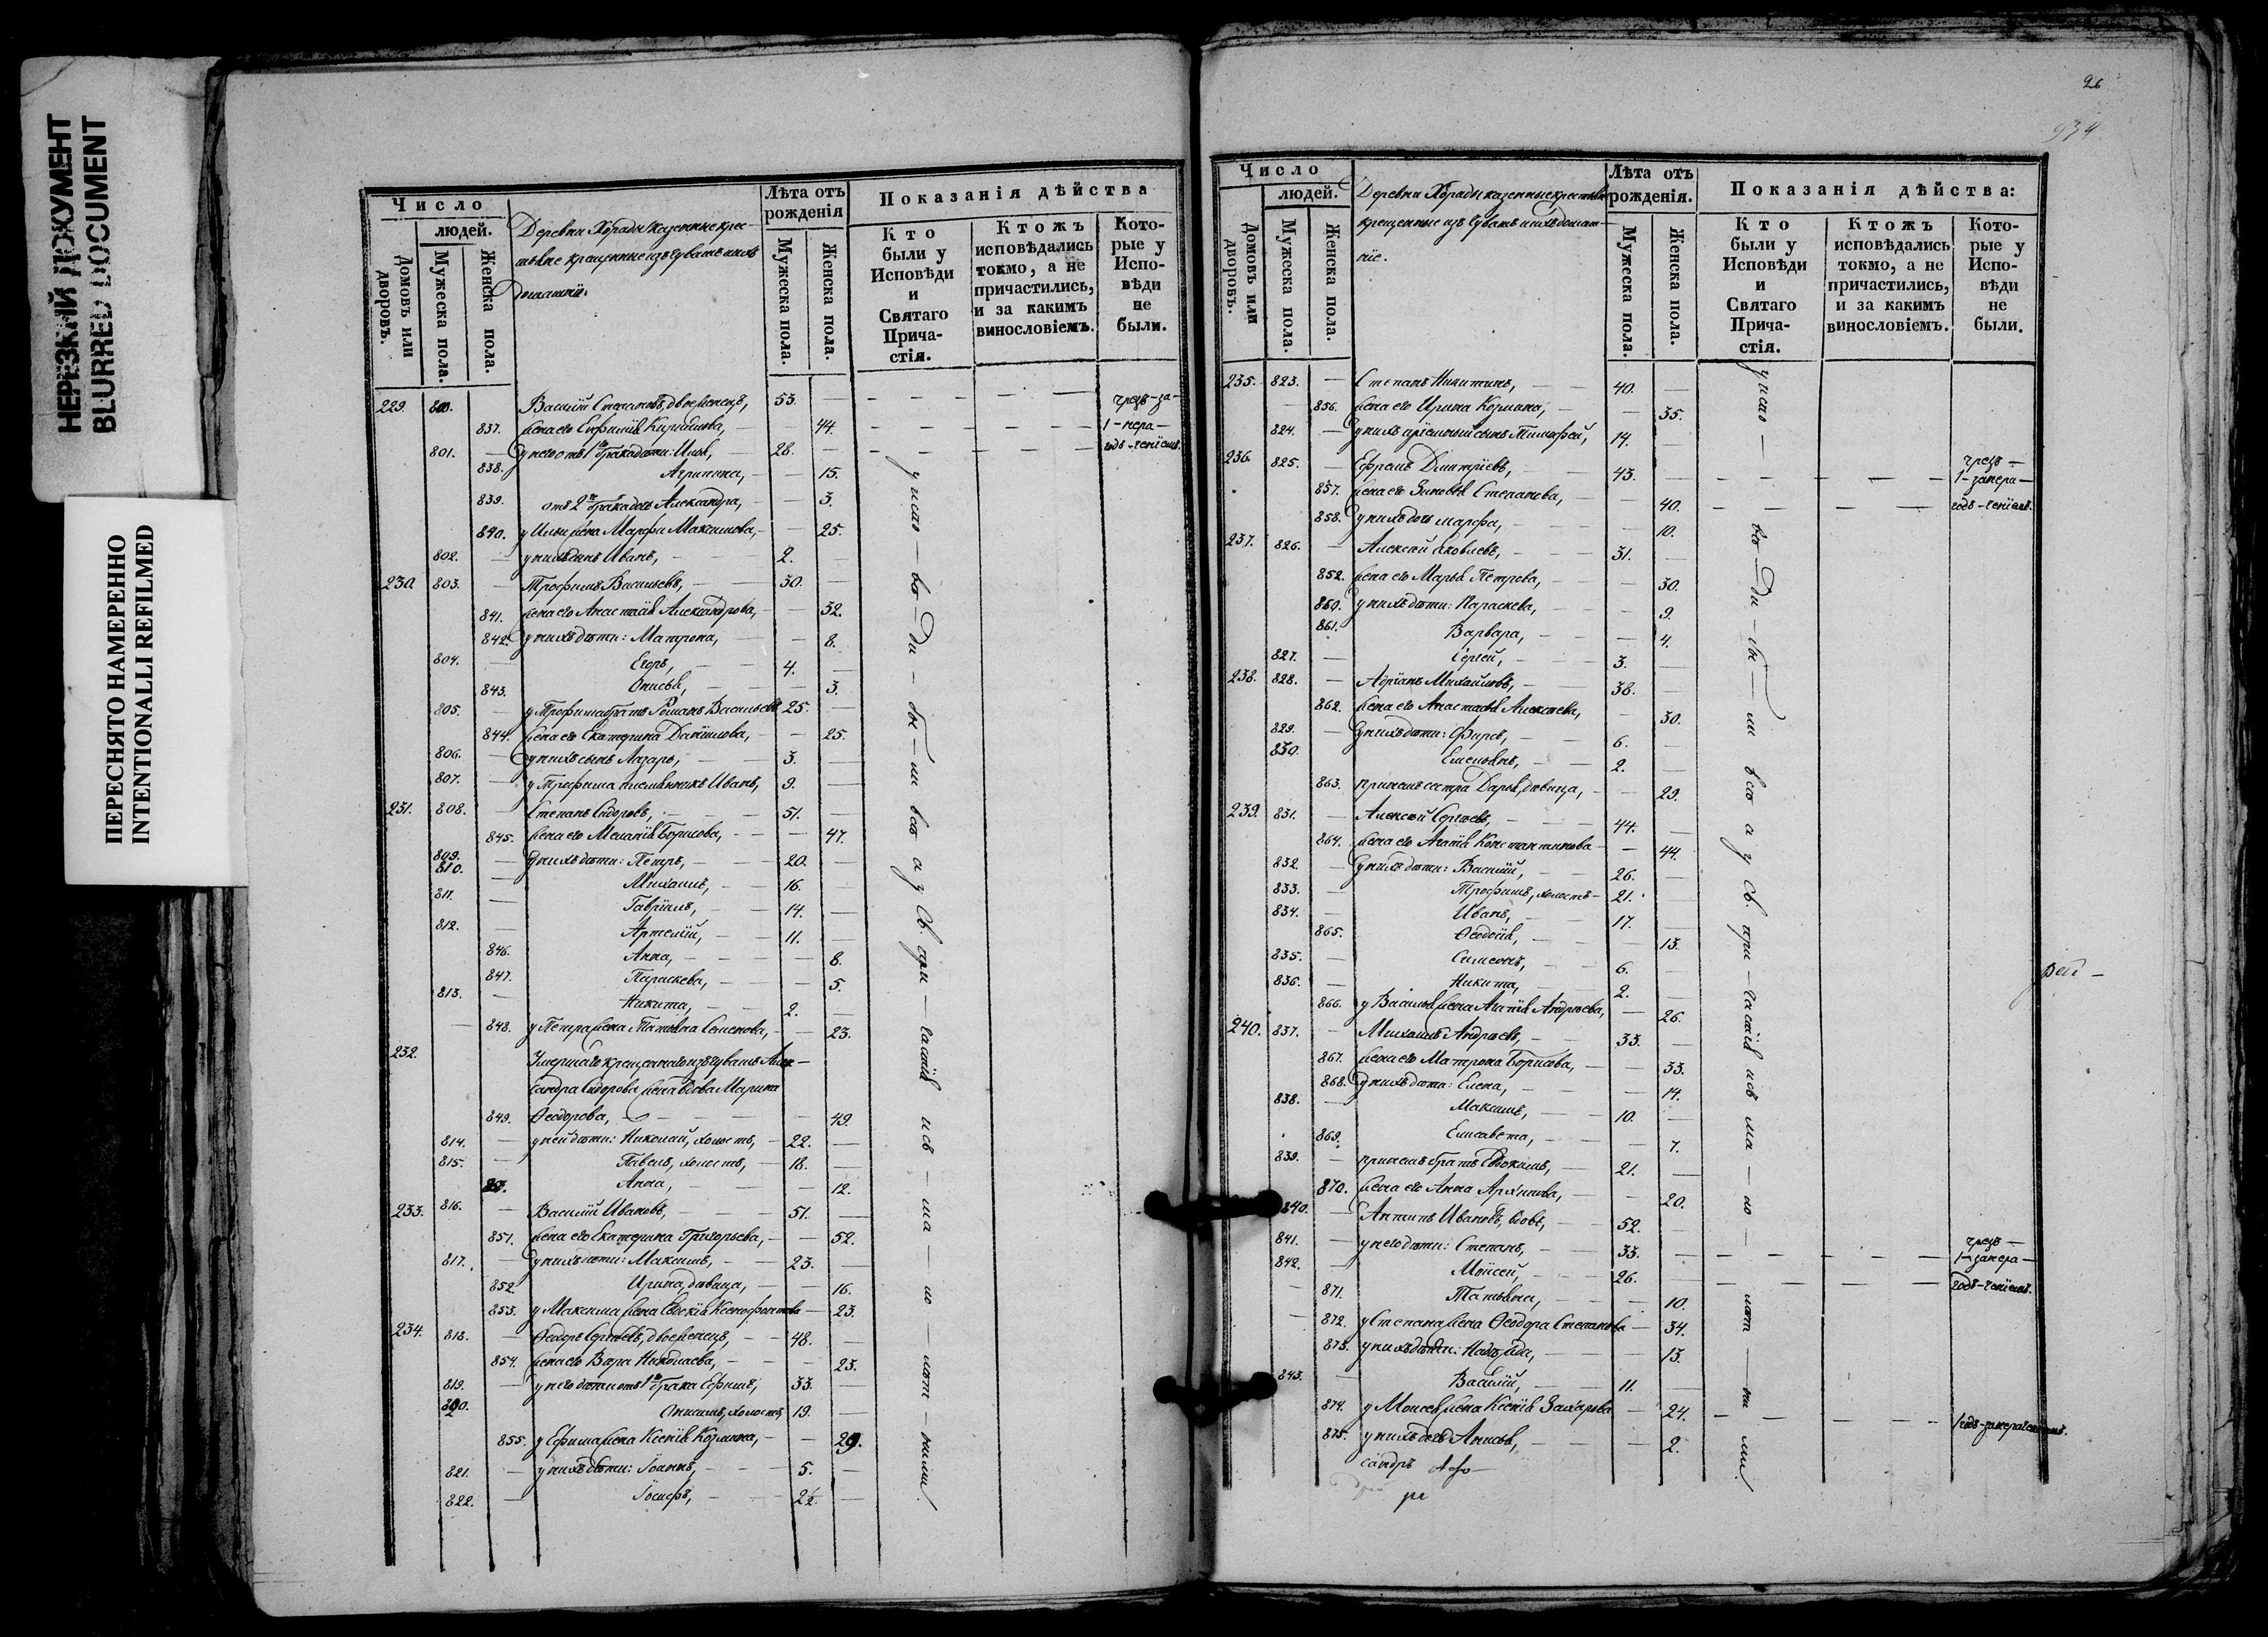 НЕРЕЗКИЙ ДОКУМЕНТ
BLURRED DOCUMENT
ПЕРЕСНЯТО НАМЕРЕННО
INTENTIONALLI REFILMED
Число
людей.
Домовъ или дворовъ.
Мужеска пола.
Женска пола.
Деревни Хорады казенные крес-
тьяне крещенные изъ чувашъ и ихъ
домашніе.
Лѣта отъ рожденія
Мужеска пола.
Женска пола.
Показанія дѣйства
Кто были у Исповѣди и Святаго Прича-стія.
Ктожъ исповѣдались токмо, а не причастились, и за какимъ винословіемъ.
Кото-рые у Испо-вѣди не были.
229. 800. Василій Степановъ, двоеженецъ, 53. чрезъ-за-
837. жена его Евфимія Кириллова, 44. 1-нера-
801. у него отъ 1го брака дѣти: Илья, 28. годъ-ченіемъ.
838. Агрипина, 15.
839. отъ 2го брака дочь Александра, 3.
840. у Ильи жена Марфа Максимова, 25.
802. у нихъ сынъ Иванъ, 2.
230. 803. Трофимъ Васильевъ, 30.
841. жена его Анастасія Александрова, 32.
842. у нихъ дѣти: Матрона, 8.
804. Егоръ, 4.
843. Анисья, 3.
805. у Трофима братъ Романъ Васильевъ 25.
844. жена его Екатерина Даніилова, 25.
806. у нихъ сынъ Лазарь, 3.
807. у Трофима племянникъ Иванъ, 9.
231. 808. Степанъ Сидоровъ, 51.
845. жена его Меланія Борисова, 47.
809. у нихъ дѣти: Петръ, 20.
810. Михаилъ, 16.
811. Гавріилъ, 14.
812. Артемій, 11.
846. Анна, 8.
847. Параскева, 5.
813. Никита, 2.
848. у Петра жена Татьяна Семенова, 23.
232. Умершаго крещенаго изъ чувашъ Алек-
сандра Сидорова жена вдова Марина
849. Ѳеодорова, 49.
814. у ней дѣти: Николай, холостъ, 22.
815. Павелъ, холостъ, 18.
Анна, 12.
233. 816. Василій Ивановъ, 51.
851. жена его Екатерина Григорьева, 52.
817. у нихъ дѣти: Максимъ, 23.
852. Ирина, дѣвица, 16.
853. у Максима жена Евдокія Ксенофонтова 23.
234. 818. Ѳеодоръ Сергѣевъ, двоеженецъ, 48.
854. жена его Вѣра Николаева, 23.
819. у него дѣти отъ 1го брака Ефимъ, 33.
820. Анисимъ, холостъ, 19.
855. у Ефима жена Ксенія Козмина, 29.
821. у нихъ дѣти: Іоаннъ, 5.
822. Іосифъ, 2½.
у испо-вѣ-ди-бы-ли всѣ а у Св. при-частія
26
934
Число
людей.
Домовъ или дворовъ.
Мужеска пола.
Женска пола.
Деревни Хорады казенные крестьяне
крещенные изъ чувашъ и ихъ домаш-
ніе.
Лѣта отъ рожденія.
Мужеска пола.
Женска пола.
Показанія дѣйства:
Кто были у Исповѣди и Святаго Прича-стія.
Ктожъ исповѣдались токмо, а не причастились, и за какимъ винословіемъ.
Кото-рые у Испо-вѣди не были.
235. 823. Степанъ Никитинъ, 40.
856. жена его Ирина Козмина, 35.
824. у нихъ пріемный сынъ Тимофей, 14.
236. 825. Ефремъ Дмитріевъ, 43. чрезъ 1-занера-
857. жена его Зиновья Степанова, 40. годъ-ченіемъ.
858. у нихъ дочь Марфа, 10.
237. 826. Алексѣй Яковлевъ, 31.
859. жена его Марья Петрова, 30.
860. у нихъ дѣти: Параскева, 9.
861. Варвара, 4.
827. Сергѣй, 3.
238. 828. Адріанъ Михайловъ, 38.
862. жена его Анастасія Алексѣева, 30.
829. у нихъ дѣти: Фирсъ, 6.
830. Емельянъ, 2.
863. при немъ сестра Дарья, дѣвица, 29.
239. 831. Алексѣй Сергѣевъ, 44.
864. жена его Агапія Константинова 44.
832. у нихъ дѣти: Василій, 26.
833. Трофимъ, холостъ 21.
834. Иванъ, 17.
865. Ѳеодосія, 13.
835. Симеонъ, 6.
836. Никита, 2.
866. у Василья жена Агапія Андреева, 26.
240. 837. Михаилъ Андреевъ, 33.
867. жена его Матрона Борисова, 33.
868. у нихъ дѣти: Елена, 14.
838. Максимъ, 10.
869. Елисавета, 7.
839. при немъ братъ Евдокимъ, 21.
870. жена его Анна Архипова, 20.
840. Антипъ Ивановъ, вдовъ, 52.
841. у него дѣти: Степанъ, 33. чрезъ 1-занера-
842. Моисей, 26. годъ-ченіемъ.
871. Татьяна, 10.
872. у Степана жена Ѳеодора Степанова 34.
873. у нихъ дѣти: Надежда, 13.
843. Василій, 11.
874. у Моисея жена Ксенія Захарова 24.
875. у нихъ дочь Анисья, 2.
у испо-вѣ-ди-бы-ли всѣ а у Св. при-частія